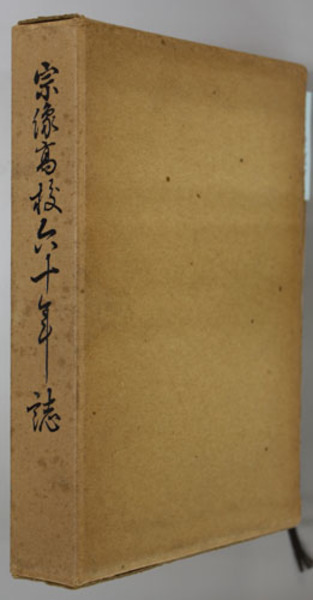 宗像高校六十年誌